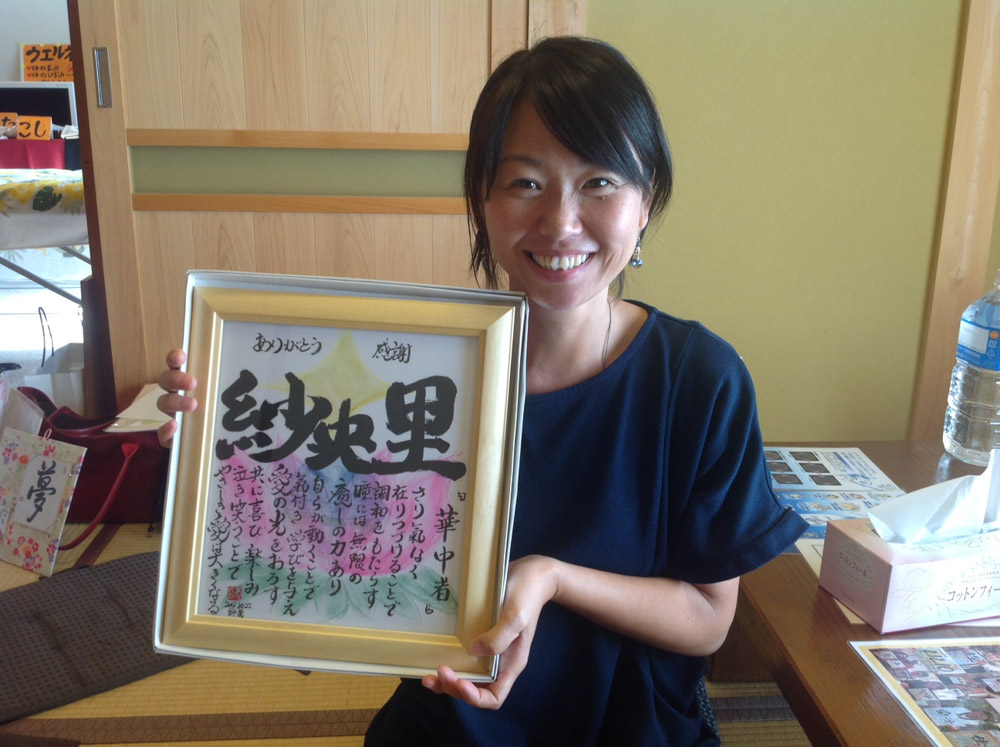 ウエル
たこし
夢
ありがとう
感謝
紗央里
華中者
さり気なく
在りつづけることで
調和をもたらす
瞳には無限の
癒しの力あり
自らが動くことで
気付き学びを与え
愛の光をおろす
共に喜び楽しみ
泣き笑うことで
やさしき愛は大きくなる
コットンフィー